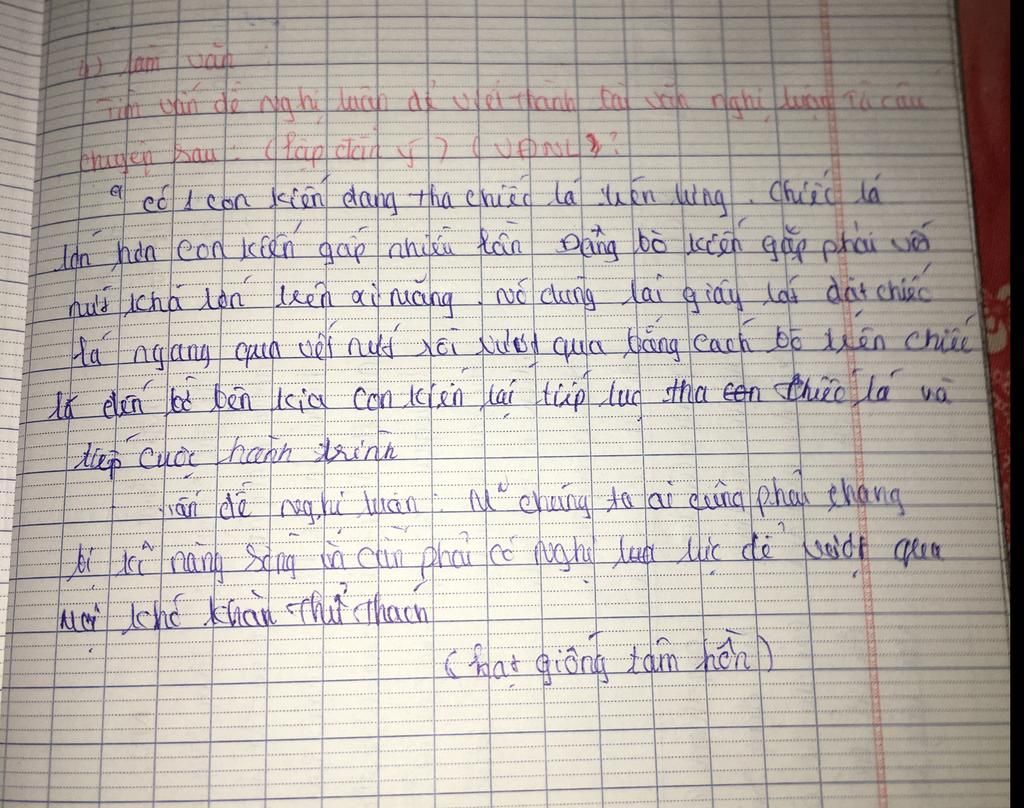 4) Làm văn:
- Tìm vấn đề nghị luận để viết thành bài văn nghị luận từ câu
chuyện sau: (lập dàn ý) (VĐNL)?
" có 1 con kiến đang tha chiếc lá trên lưng. Chiếc lá
lớn hơn con kiến gấp nhiều lần. Đang bò kiến gặp phải vết
nứt khá lớn trên xi măng. nó dừng lại giây lát đặt chiếc
lá ngang qua vết nứt rồi vượt qua bằng cách bò trên chiếc
lá đến bờ bên kia con kiến lại tiếp tục tha con chiếc lá và
tiếp cuộc hành trình
Vấn đề nghị luận: M° chúng ta ai cũng phải trang
bị kĩ năng sống và cần phải có nghị lực để vượt qua
mọi khó khăn thử thách
(hạt giống tâm hồn)